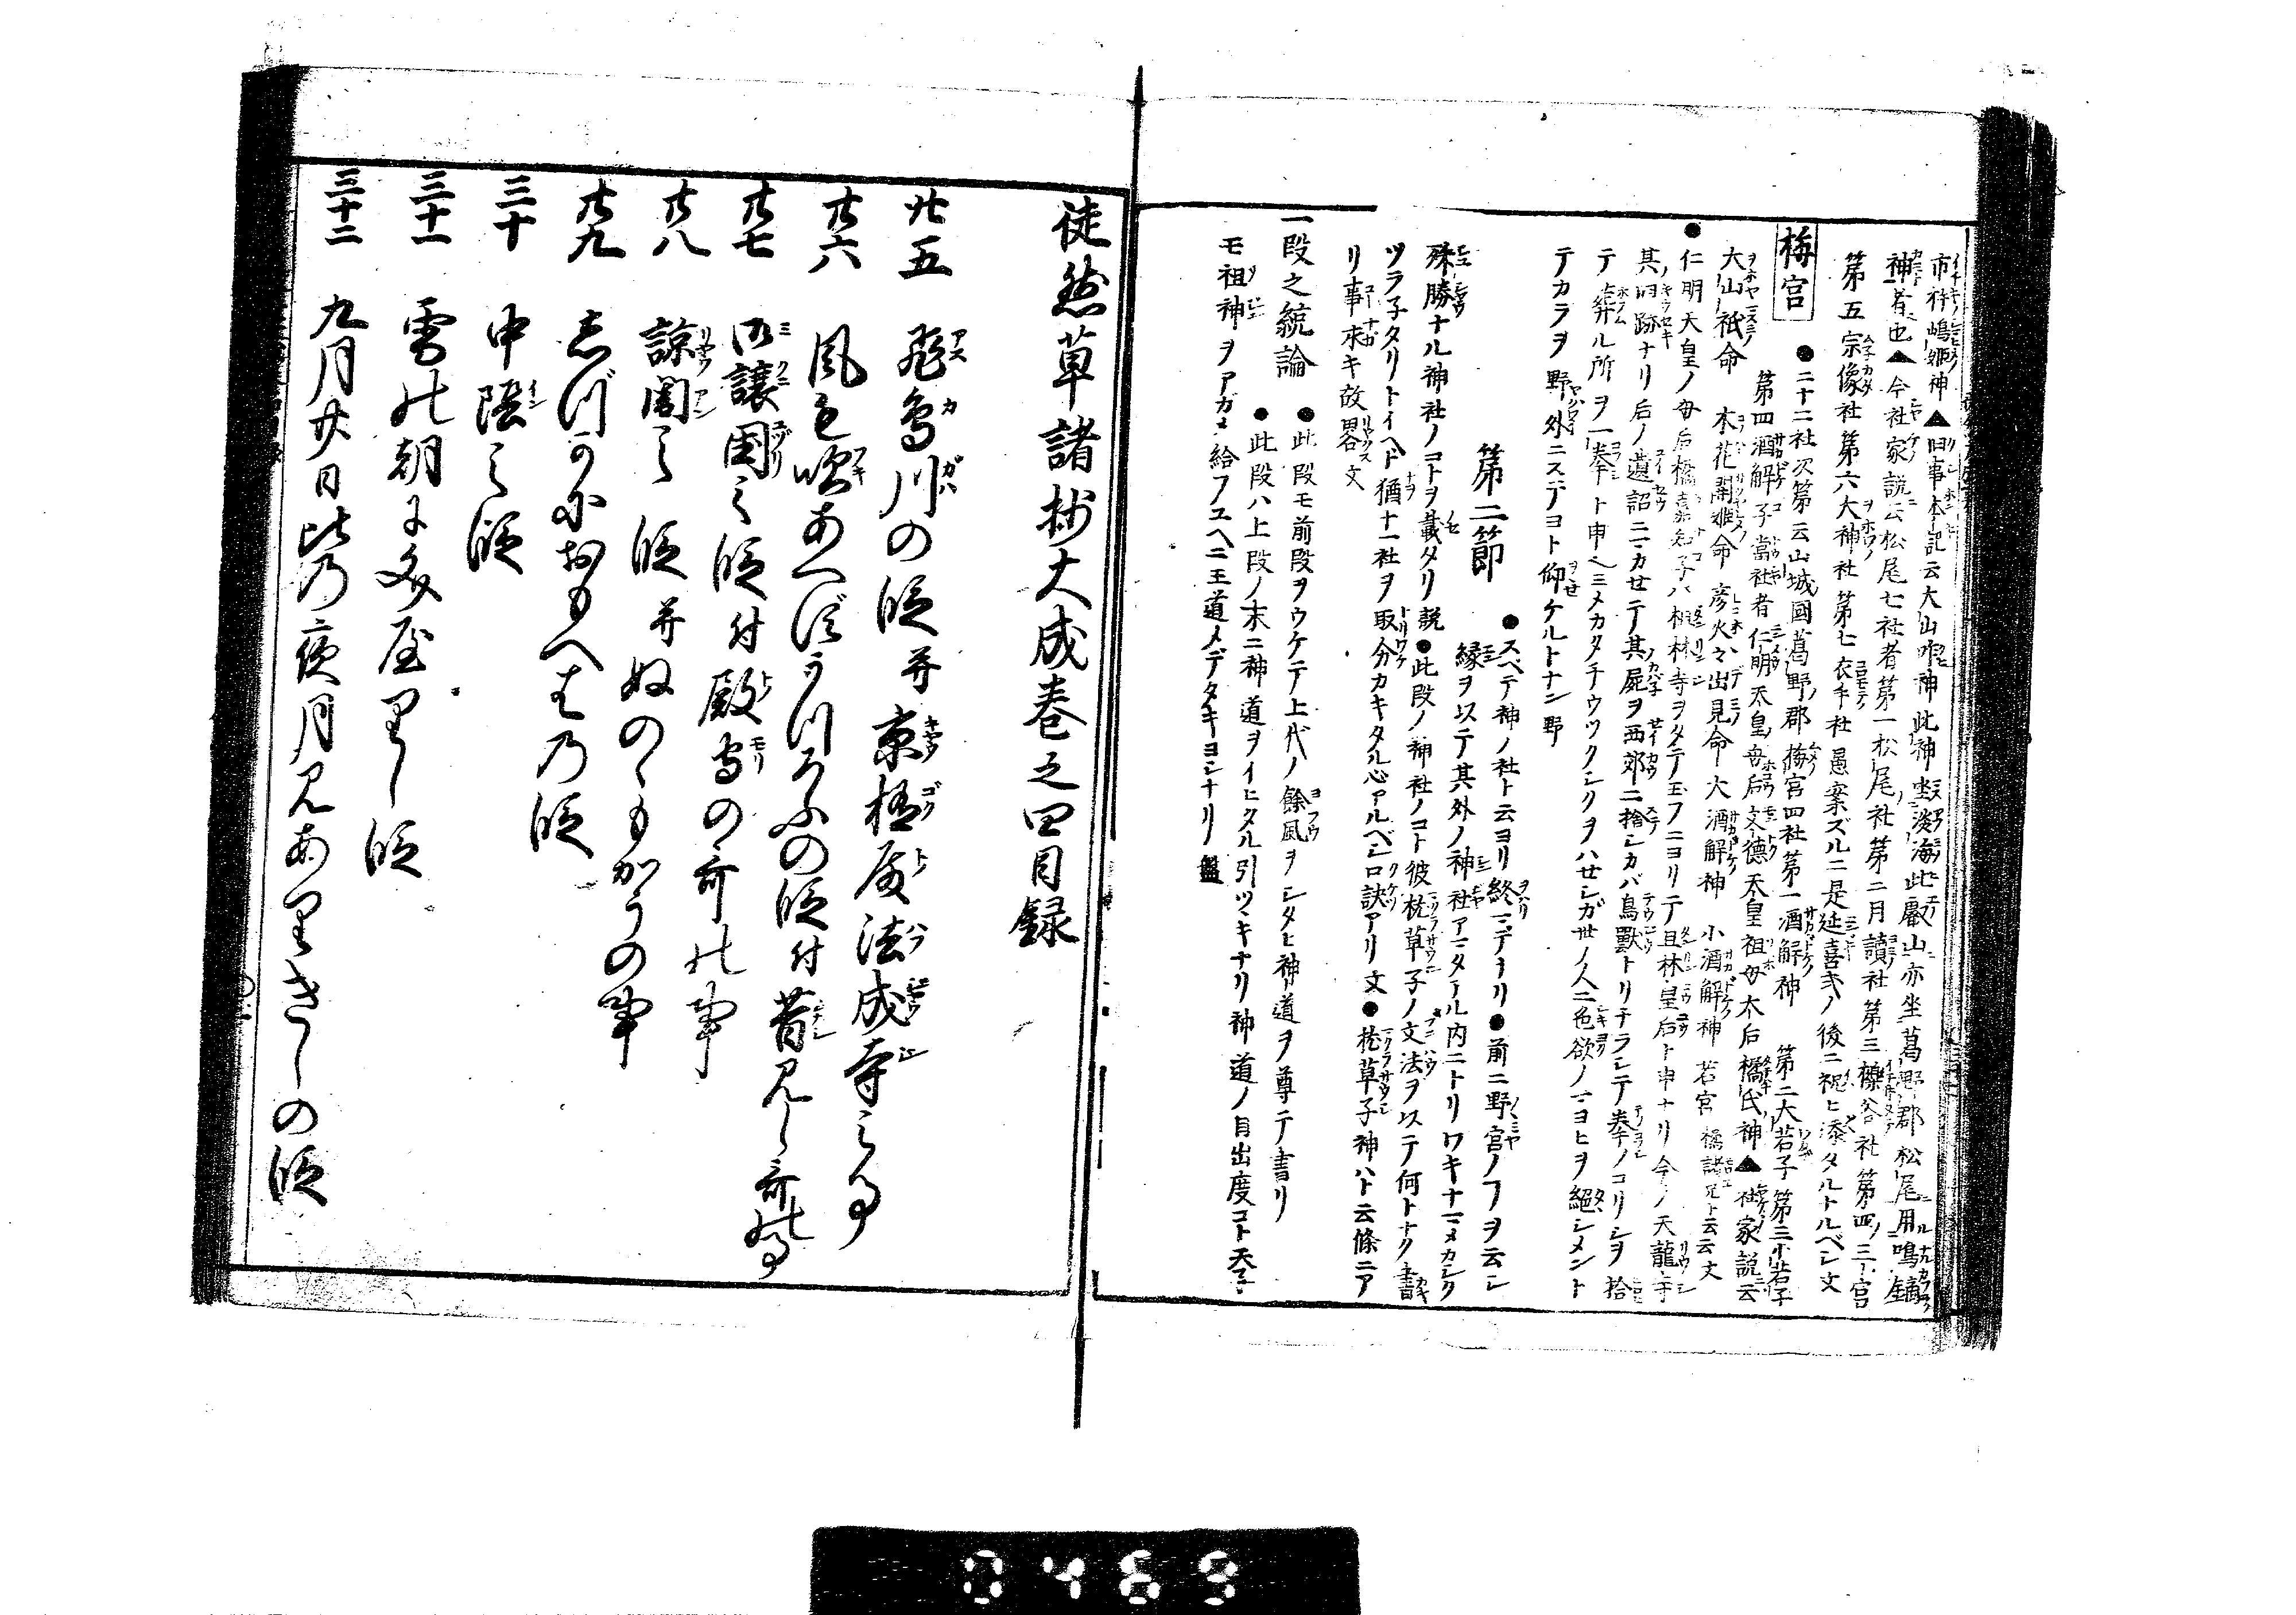 市杵嶋姫神▲旧事本記云大山咋神此神坐淡海比叡山亦坐葛野郡松尾用鳴鏑
神者也▲今社家説云松尾七社者第一松尾社第二月讀社第三櫟谷社第四ノ三ノ宮
第五宗像社第六大神社第七衣手社愚案ズルニ是延喜式ノ後ニ祝ヒ添タルトルベシ文
梅宮 ●二十二社次第云山城國葛野郡梅宮四社第一酒解神 第二大若子第三小若子
第四酒解子當社者仁明天皇母后文德天皇祖母太后橘氏神▲社家説云
大山祇命 木花開姫命 彦火々出見命 大酒解神 小酒解神 若宮 橘諸兄ト云云文
●仁明天皇ノ母后橘嘉智子ハ檀林寺ヲタテ玉フニヨリテ且林皇后ト申ナリ今ノ天龍寺
其旧跡ナリ后ノ遺詔ニマカセテ其屍ヲ西郊ニ捨シカバ鳥獸トリチラシテ拳ノコリシヲ拾
テ葬ル所ヲ一拳ト申ヘミメカタチウツクシクヲハセシガ世ノ人ニ色欲ノマヨヒヲ絕シメント
テカラヲ野外ニステヨト仰ケルトナン野
第二節 ●スベテ神ノ社ト云ヨリ終マデナリ●前ニ野宮ノフヲ云シ
縁ヲ以テ其外ノ神社アマタアル内ニトリワキナマメカシク
殊勝ナル神社ノコトヲ載タリ 説●此段ノ神社ノコト彼枕草子ノ文法ヲ以テ何トナク書
ツラ子タリトイヘド猶十一社ヲ取分カキタル心アルベシ口訣アリ文●枕草子神ハト云條ニア
リ事永キ故畧文
一段之統論 ●此段モ前段ヲウケテ上代ノ餘風ヲシタヒ神道ヲ尊テ書リ
●此段ハ上段ノ末ニ神道ヲイヒタル引ツヾキナリ神道ノ目出度コト天子
モ祖神ヲアガメ給フユヘニ王道メデタキヨシナリ盤
徒然草諸抄大成巻之四目録
廿五 飛鳥川の段并京極殿法成寺之事
廿六 風も吹あへずうつろふの段付昔見し哥の事
廿七 御譲國之段付殿守の哥の事
廿八 諒闇之段并ぬのゝもかうの事
廿九 しづかにおもへばの段
三十 中陰之段
三十一 雪の朝文やりし段
三十二 九月廿日比の夜月見ありきしの段
0469